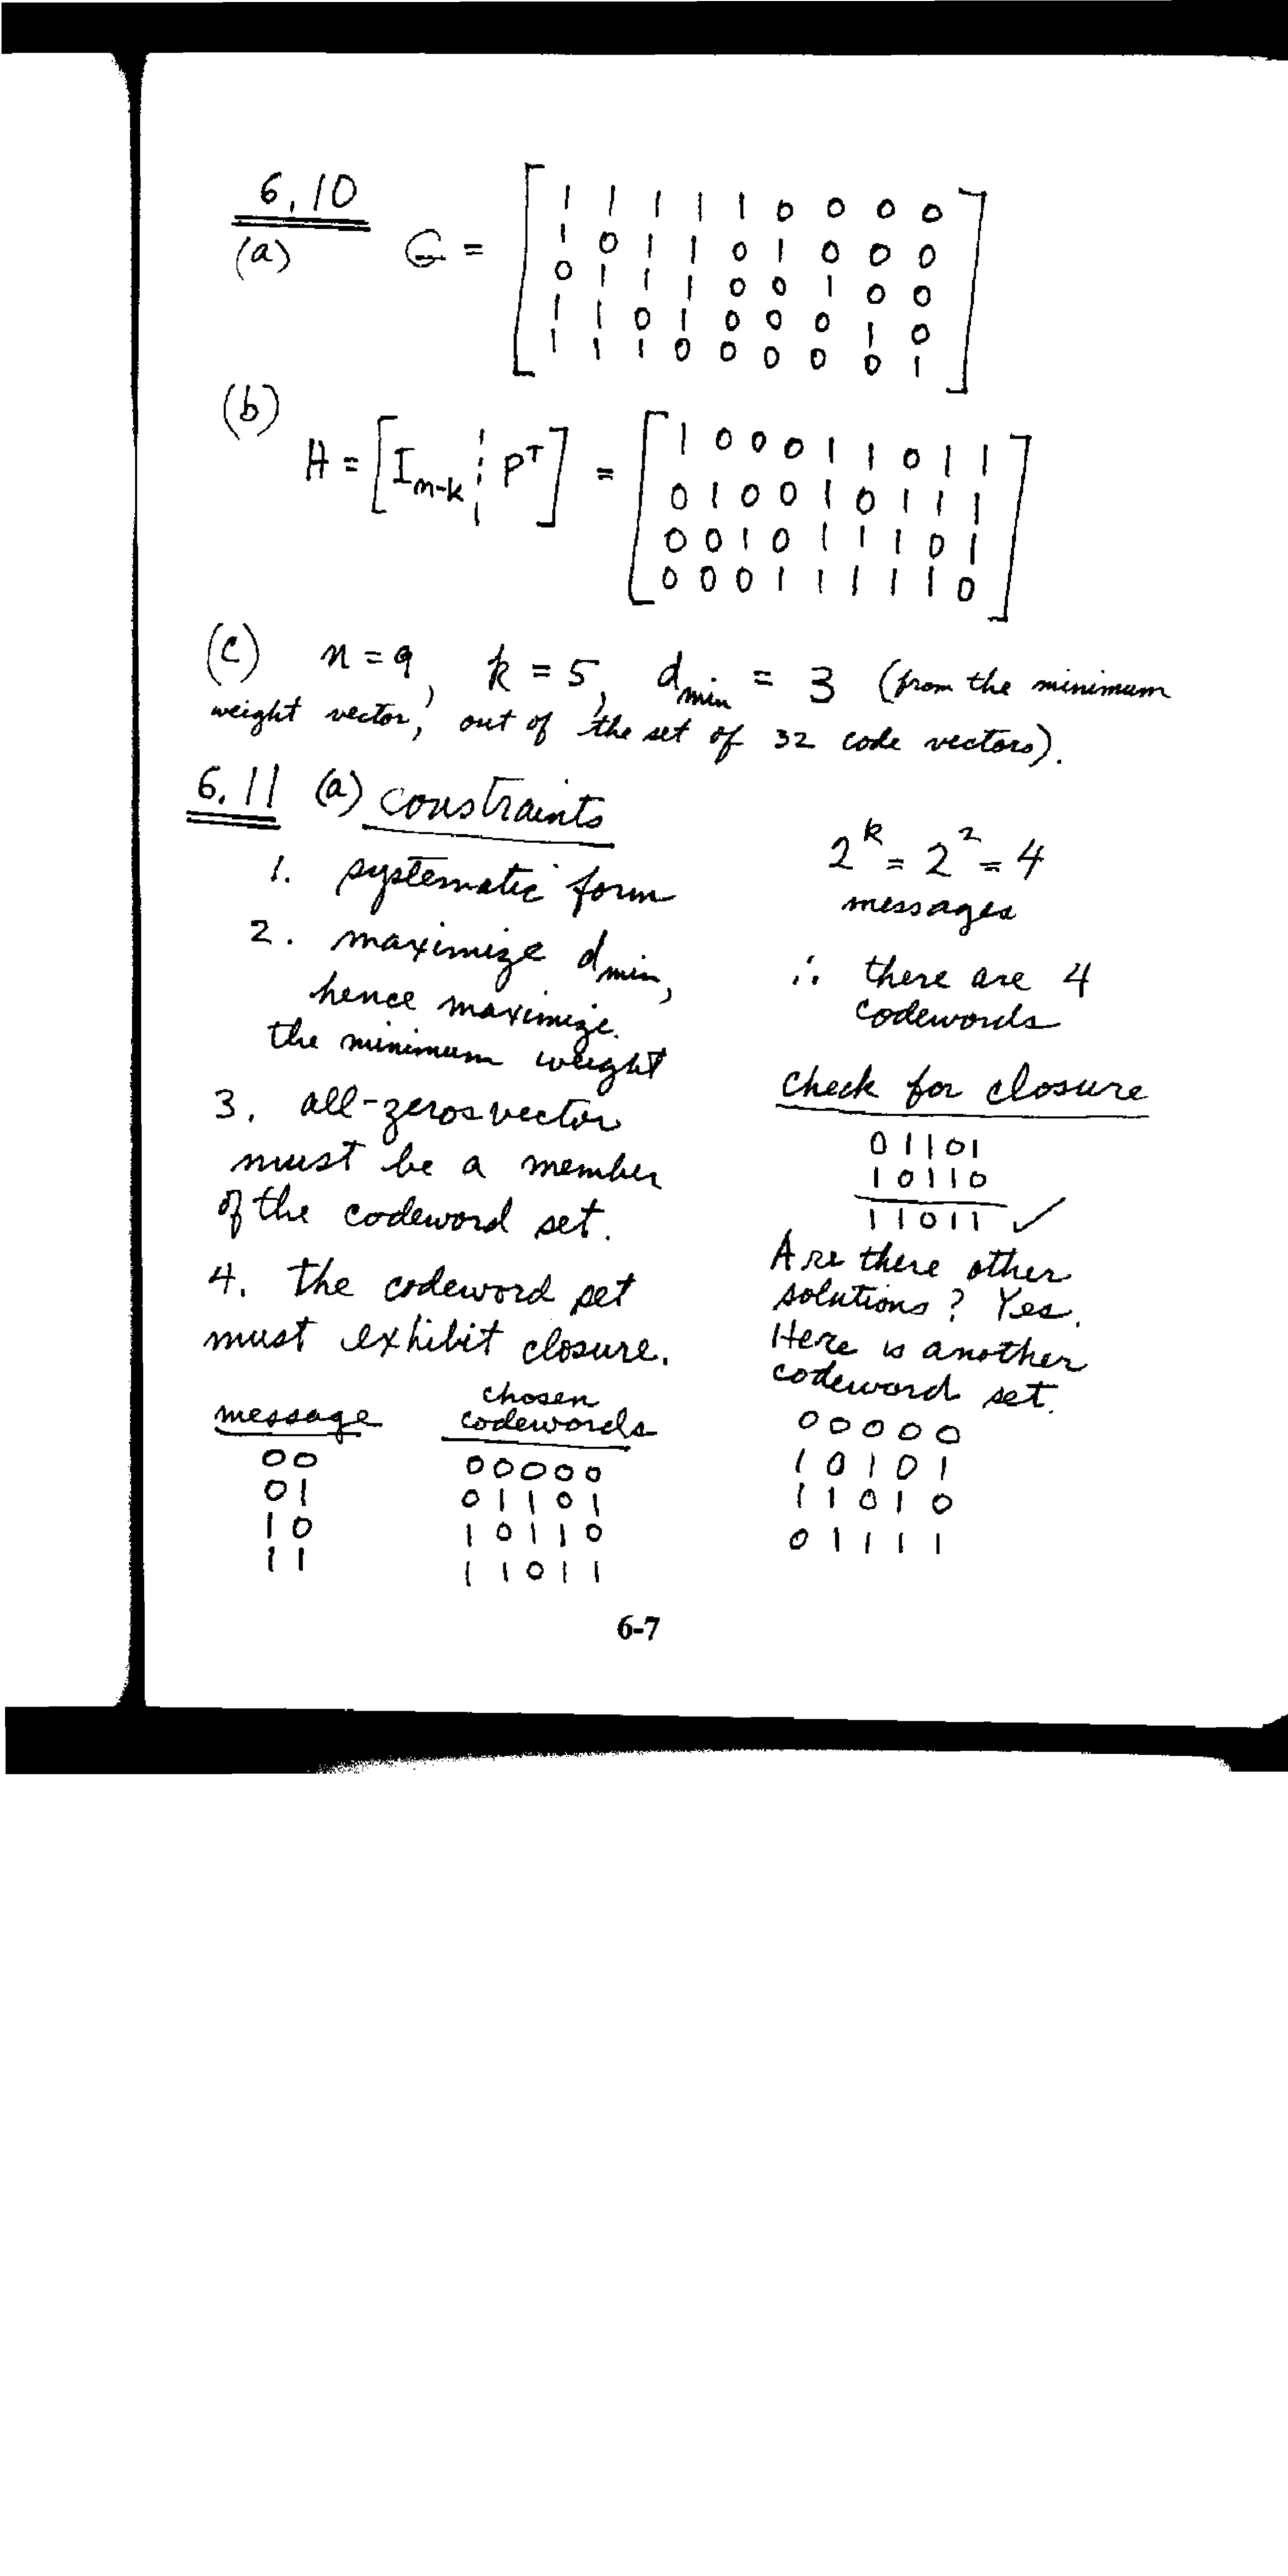 6.10
(a) G = [ 1 1 1 1 1 0 0 0 0
1 0 1 1 0 1 0 0 0
0 1 1 1 0 0 1 0 0
1 1 0 1 0 0 0 1 0
1 1 1 0 0 0 0 0 1 ]
(b)
H = [ I_{n-k} ¦ P^T ] = [ 1 0 0 0 1 1 0 1 1
0 1 0 0 1 0 1 1 1
0 0 1 0 1 1 1 0 1
0 0 0 1 1 1 1 1 0 ]
(c) n = 9, k = 5, d_min = 3 (from the minimum
weight vector, out of the set of 32 code vectors).
6.11 (a) constraints
1. systematic form
2. maximize d_min,
hence maximize
the minimum weight
3. all-zeros vector
must be a member
of the codeword set.
4. the codeword set
must exhibit closure.
message
00
01
10
11
chosen
codewords
00000
01101
10110
11011
2^k = 2^2 = 4
messages
∴ there are 4
codewords
check for closure
01101
10110
11011 ✓
Are there other
solutions? Yes.
Here is another
codeword set.
00000
10101
11010
01111
6-7